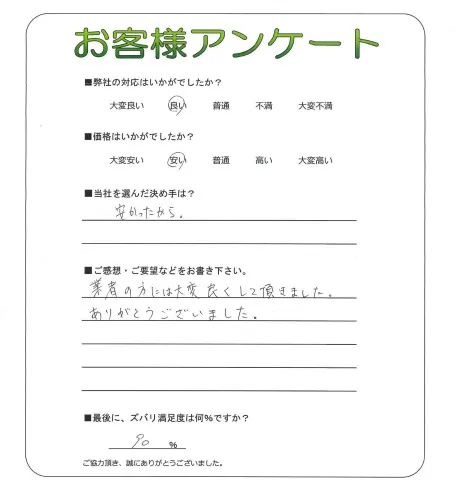 お客様アンケート
■弊社の対応はいかがでしたか？
大変良い 良い 普通 不満 大変不満
■価格はいかがでしたか？
大変安い 安い 普通 高い 大変高い
■当社を選んだ決め手は？
安かったから。
■ご感想・ご要望などをお書き下さい。
業者の方には大変良くして頂きました。
ありがとうございました。
■最後に、ズバリ満足度は何％ですか？
90 ％
ご協力頂き、誠にありがとうございました。